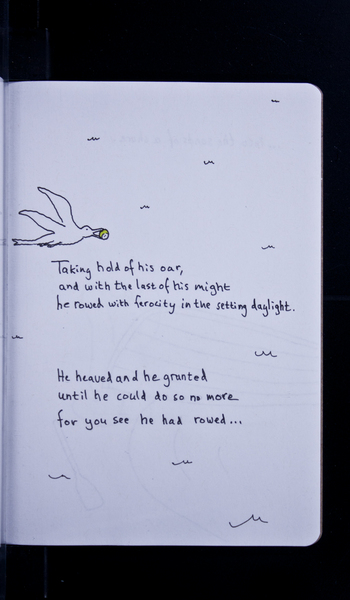 Taking hold of his oar,
and with the last of his might
he rowed with ferocity in the setting daylight.
He heaved and he grunted
until he could do so no more
for you see he had rowed...